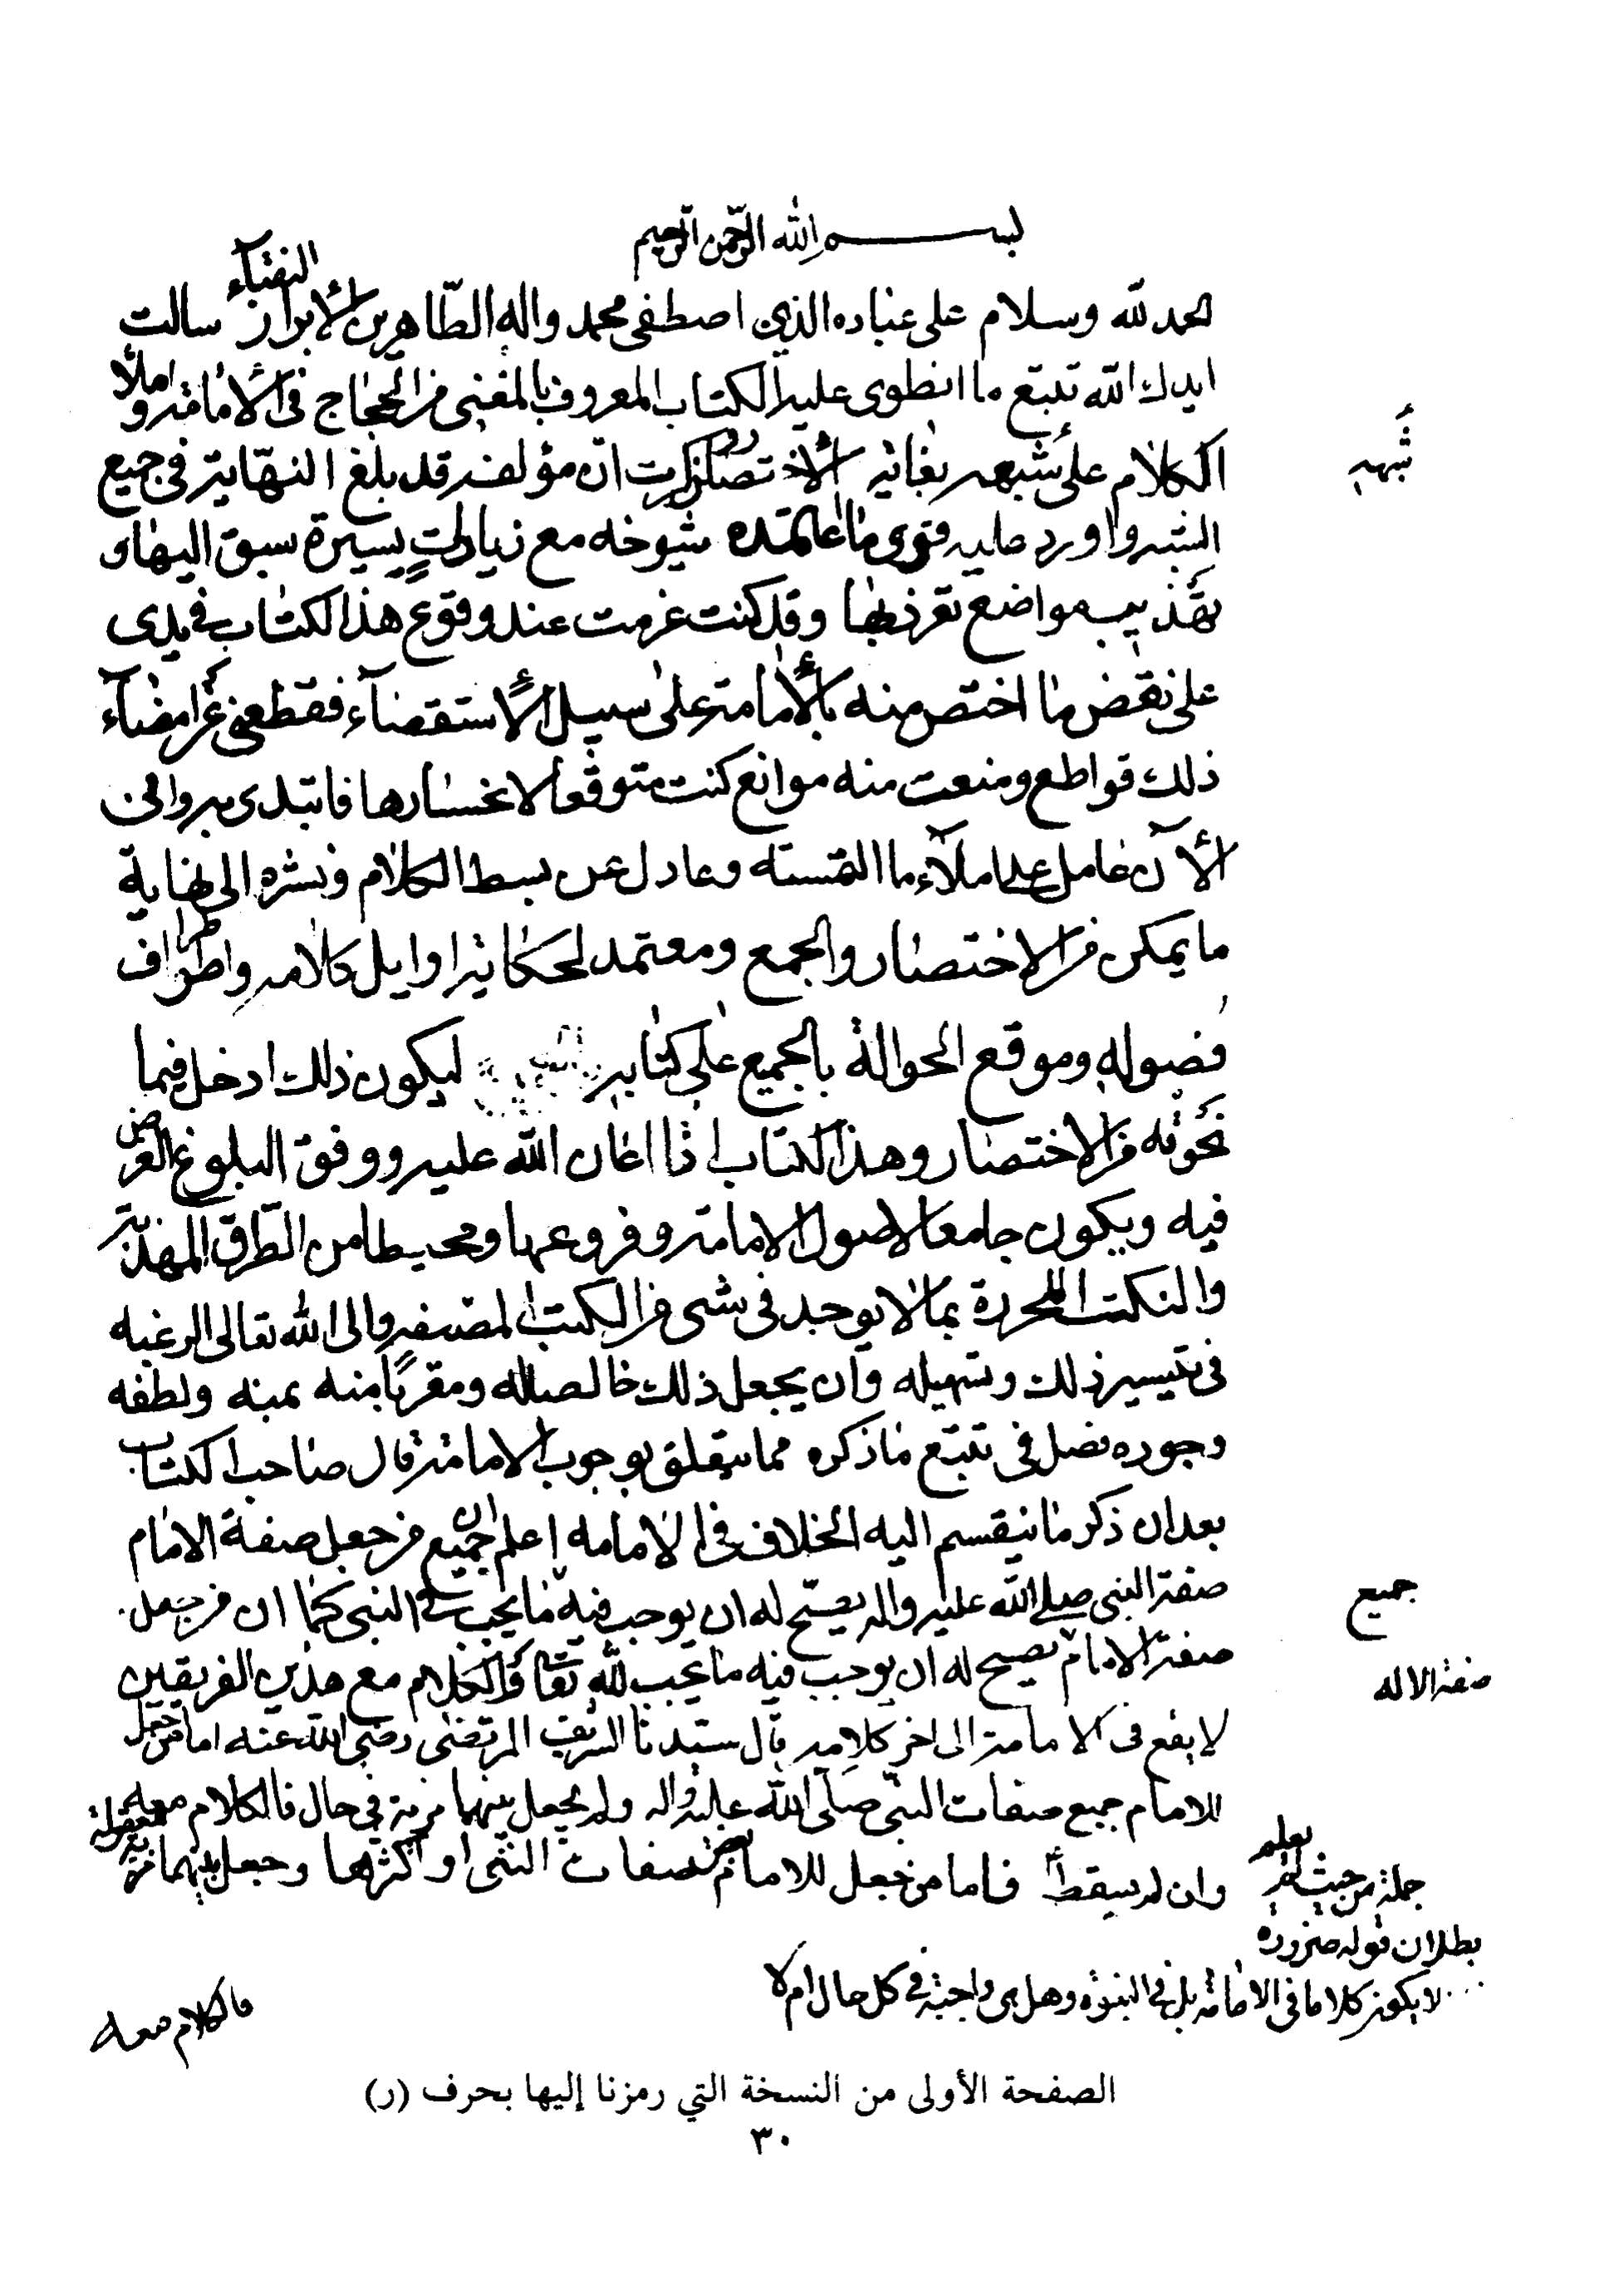 بسم الله الرحمن الرحيم
النقباء
الحمد لله وسلام على عباده الذين اصطفى محمد واله الطاهرين الأبرار سالت
ايدك الله تتبع ما انطوى عليه الكتاب المعروف بالمغني من الحجاج في الأمامة واملأ
الكلام على شبهه بغاية الأختصار وذكرت ان مؤلفه قد بلغ النهاية في جميع
شبهه
الشبه واورد عليه قوى ما اعتمده شيوخه مع زيادات يسيرة سبق اليها و
تهذيب مواضع تفرد بها وقد كنت عزمت عند وقوع هذا الكتاب في يدى
على نقض ما اختص منه بالأمامة على سبيل الأستقضاء فقطعني عن امضاء
ذلك قواطع ومنعت منه موانع كنت متوقعا لانحسارها فابتدى به والى
الأن عامل على املاء ما التمسته وعادل عن بسط الكلام ونشره الى نهاية
ما يمكن من الاختصار والجمع ومعتمد لحكاية اوايل كلامه واطراف
فصوله وموقع الحوالة بالجميع على كتابه ليكون ذلك ادخل فيما
نحوته من الاختصار وهذا الكتاب اذا اعان الله عليه ووفق البلوغ الغرض
فيه ويكون جامعا لاصول الامامة وفروعها ومحيطا من الطرق المهذبة
والنكت المحررة بما لا يوجد في شى من الكتب المصنفه والى الله تعالى الرغبه
في تيسير ذلك وتسهيله وان يجعل ذلك خالصا له ومقربا منه بمنه ولطفه
وجوده فصل في تتبع ما ذكره مما يتعلق بوجوب الامامة قال صاحب الكتاب
بعد ان ذكر ما ينقسم اليه الخلاف في الامامه إعلم ان جميع من جعل صفة الامام
جميع
صفة النبي صلى الله عليه واله يصح له ان يوجب فيه ما يجب في النبي كما ان من جعل
صفة الامام يصح له ان يوجب فيه ما يجب لله تعا والكلام مع هذين الفريقين
صفة الاله
لا يقع في الامامة الى اخر كلامه قال سيدنا الشريف المرتضى رضي الله عنه اما من جعل
للامام جميع صفات النبي صلى الله عليه واله ولم يجعل بينهما مزية في حال فالكلام معه
وان لم يسقط فاما من جعل للامام بعض صفات النبي او اكثرها وجعل بينهما مزية معقولة
جملة من حيث لم يعلم
بطلان قوله ضرورة
لا يكون كلاما في الامامة بل في النبوة وهل هى واجبة في كل حال ام لا
فالكلام معه
الصفحة الأولى من النسخة التي رمزنا إليها بحرف (ر)
٣٠